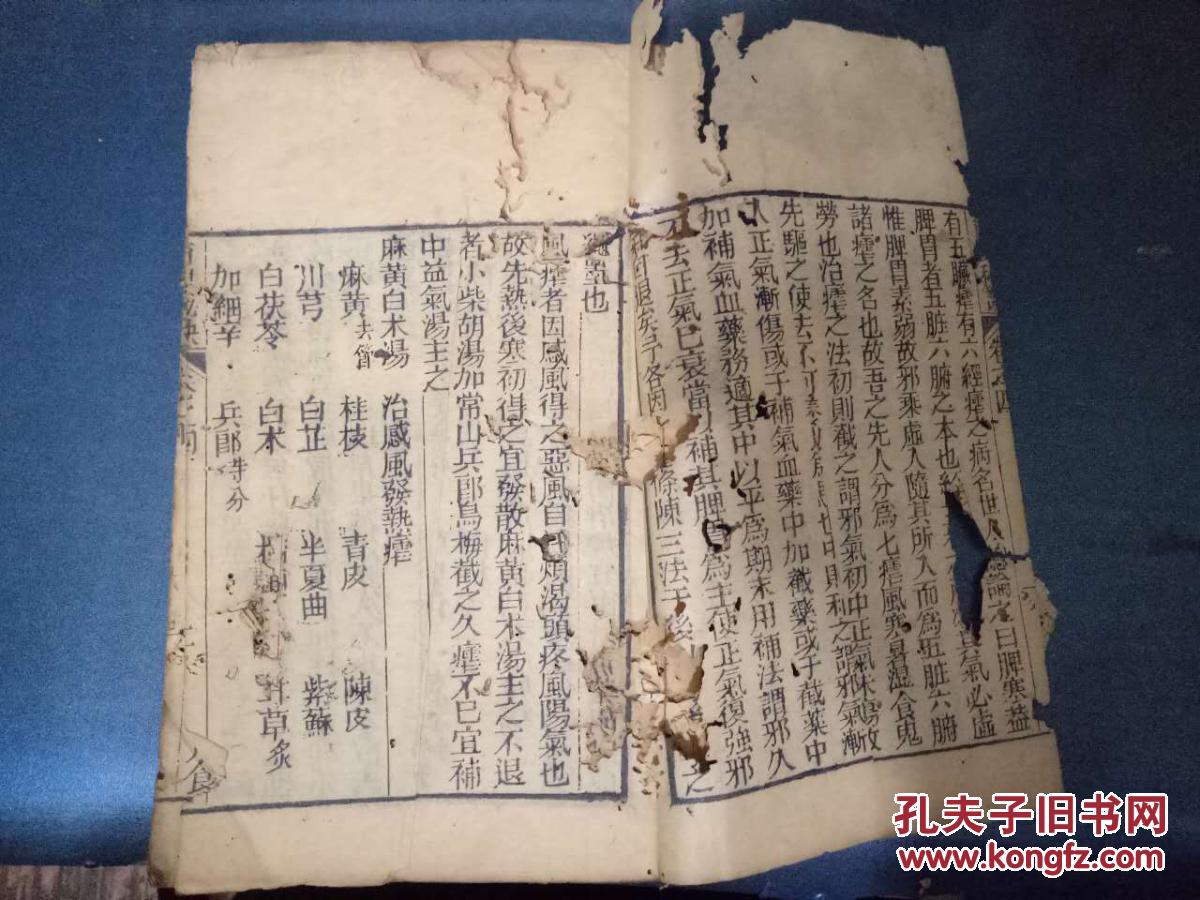 有五臟瘧有六經瘧之病名世總論之曰脾寒蓋
脾胃者五脏六腑之本也
惟脾胃素弱故邪乘虛入隨其所入而為五脏六腑
諸瘧之名也故吾之先人分為七瘧風寒暑濕食鬼
勞也治瘧之法初則截之謂邪氣初中正氣未傷故
先驅之使去不可中則和之謂邪氣漸
入正氣漸傷或于補氣血藥中加截藥或于截藥中
加補氣血藥務適其中以平為期末用補法謂邪久
不去正氣已衰當以補其脾胃為主使正氣復強邪
退矣予各因條陳三法于後之
繩墨也
風瘧者因感風得之惡風自汗煩渴頭疼風陽氣也
故先熱後寒初得之宜發散麻黃白术湯主之不退
者小柴胡湯加常山兵郎烏梅截之久瘧不已宜補
中益氣湯主之
麻黃白术湯 治感風發熱瘧
麻黃去節 桂枝 青皮 陳皮
川芎 白芷 半夏曲 紫蘇
白茯苓 白术 甘草炙
加細辛 兵郎等分
孔夫子旧书网
www.kongfz.com